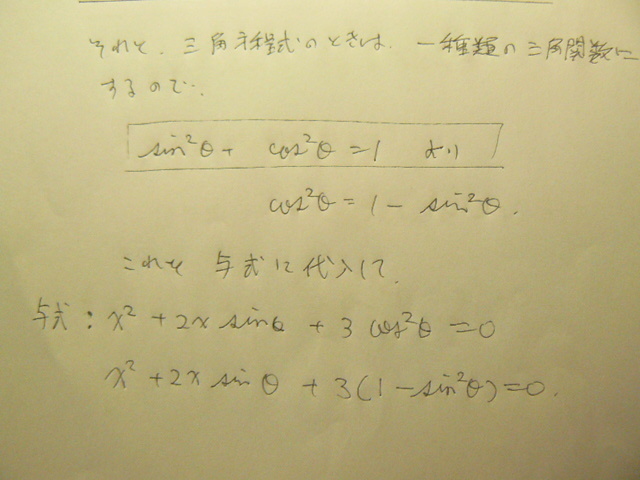 それと、三角方程式のときは、一種類の三角関数に
するので、
sin²θ + cos²θ = 1 より
cos²θ = 1 - sin²θ.
これを 与式に代入して、
与式 : x² + 2x sinθ + 3 cos²θ = 0
x² + 2x sinθ + 3(1 - sin²θ) = 0.